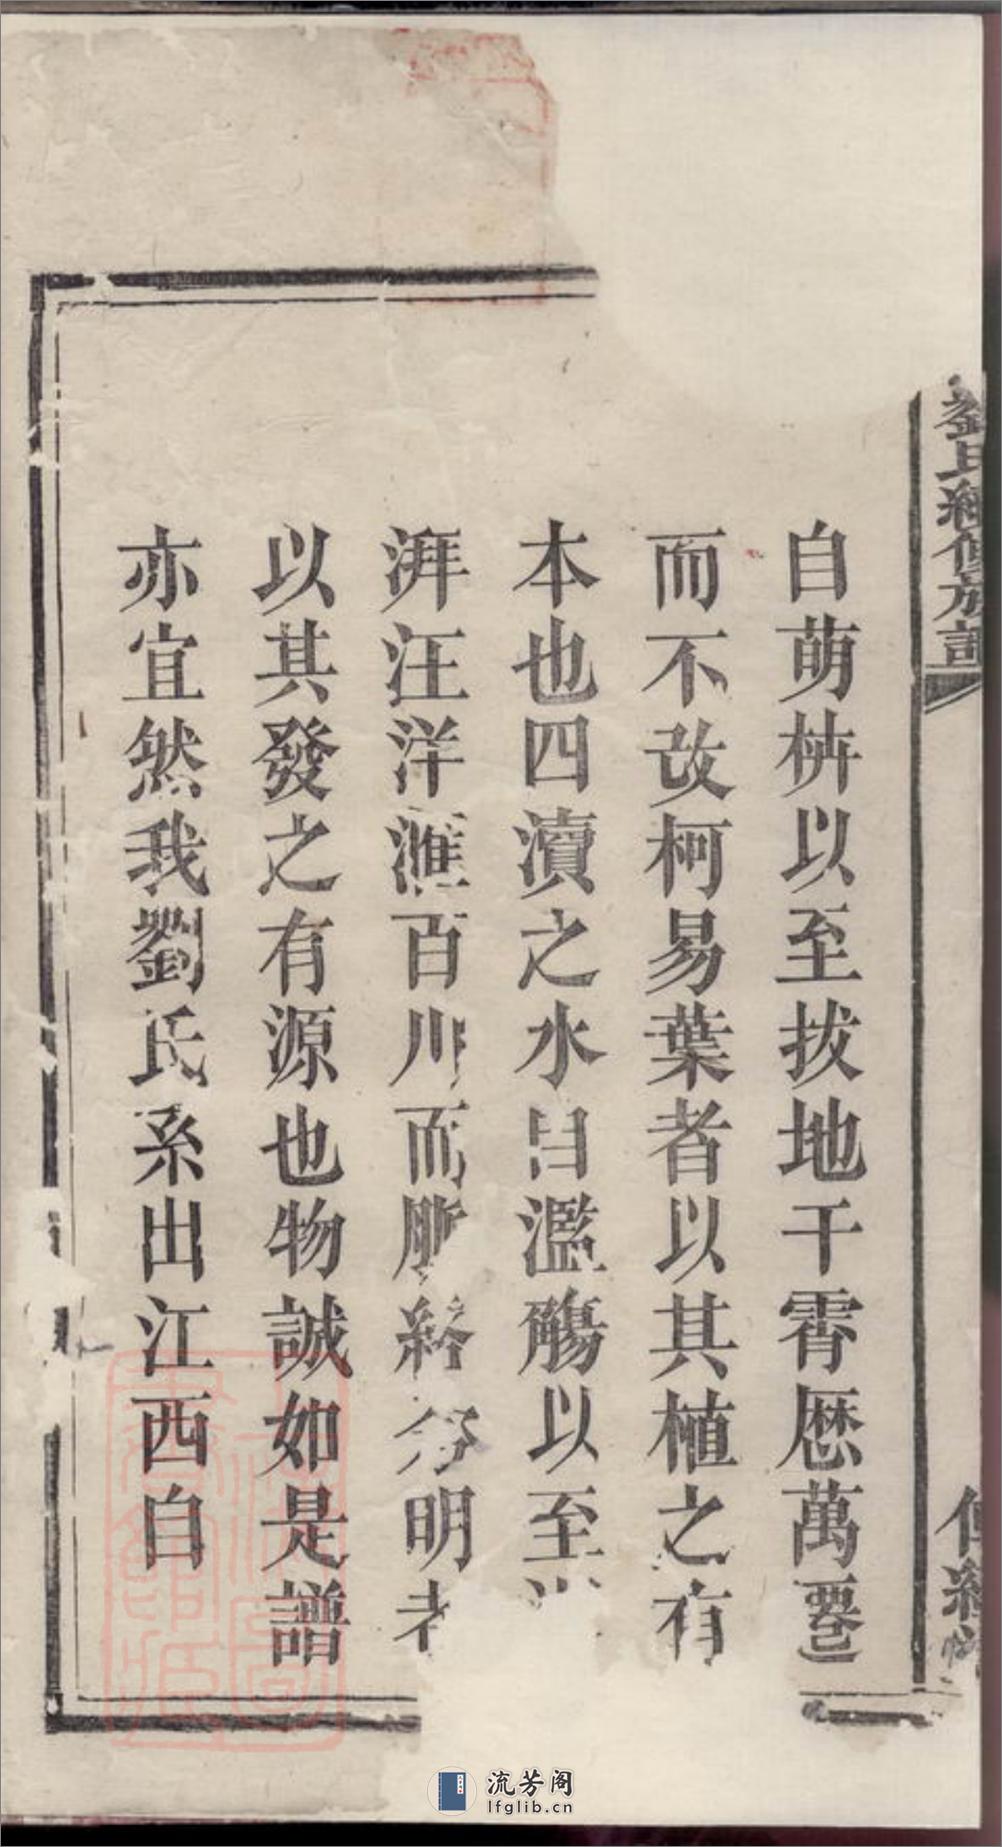 劉氏續修族譜
自萌枿以至拔地干霄厯萬遷
而不改柯易葉者以其植之有
本也四瀆之水自濫觴以至澎
湃汪洋滙百川而脈絡分明者
以其發之有源也物誠如是譜
亦宜然我劉氏系出江西自
流芳阁
lfglib.cn